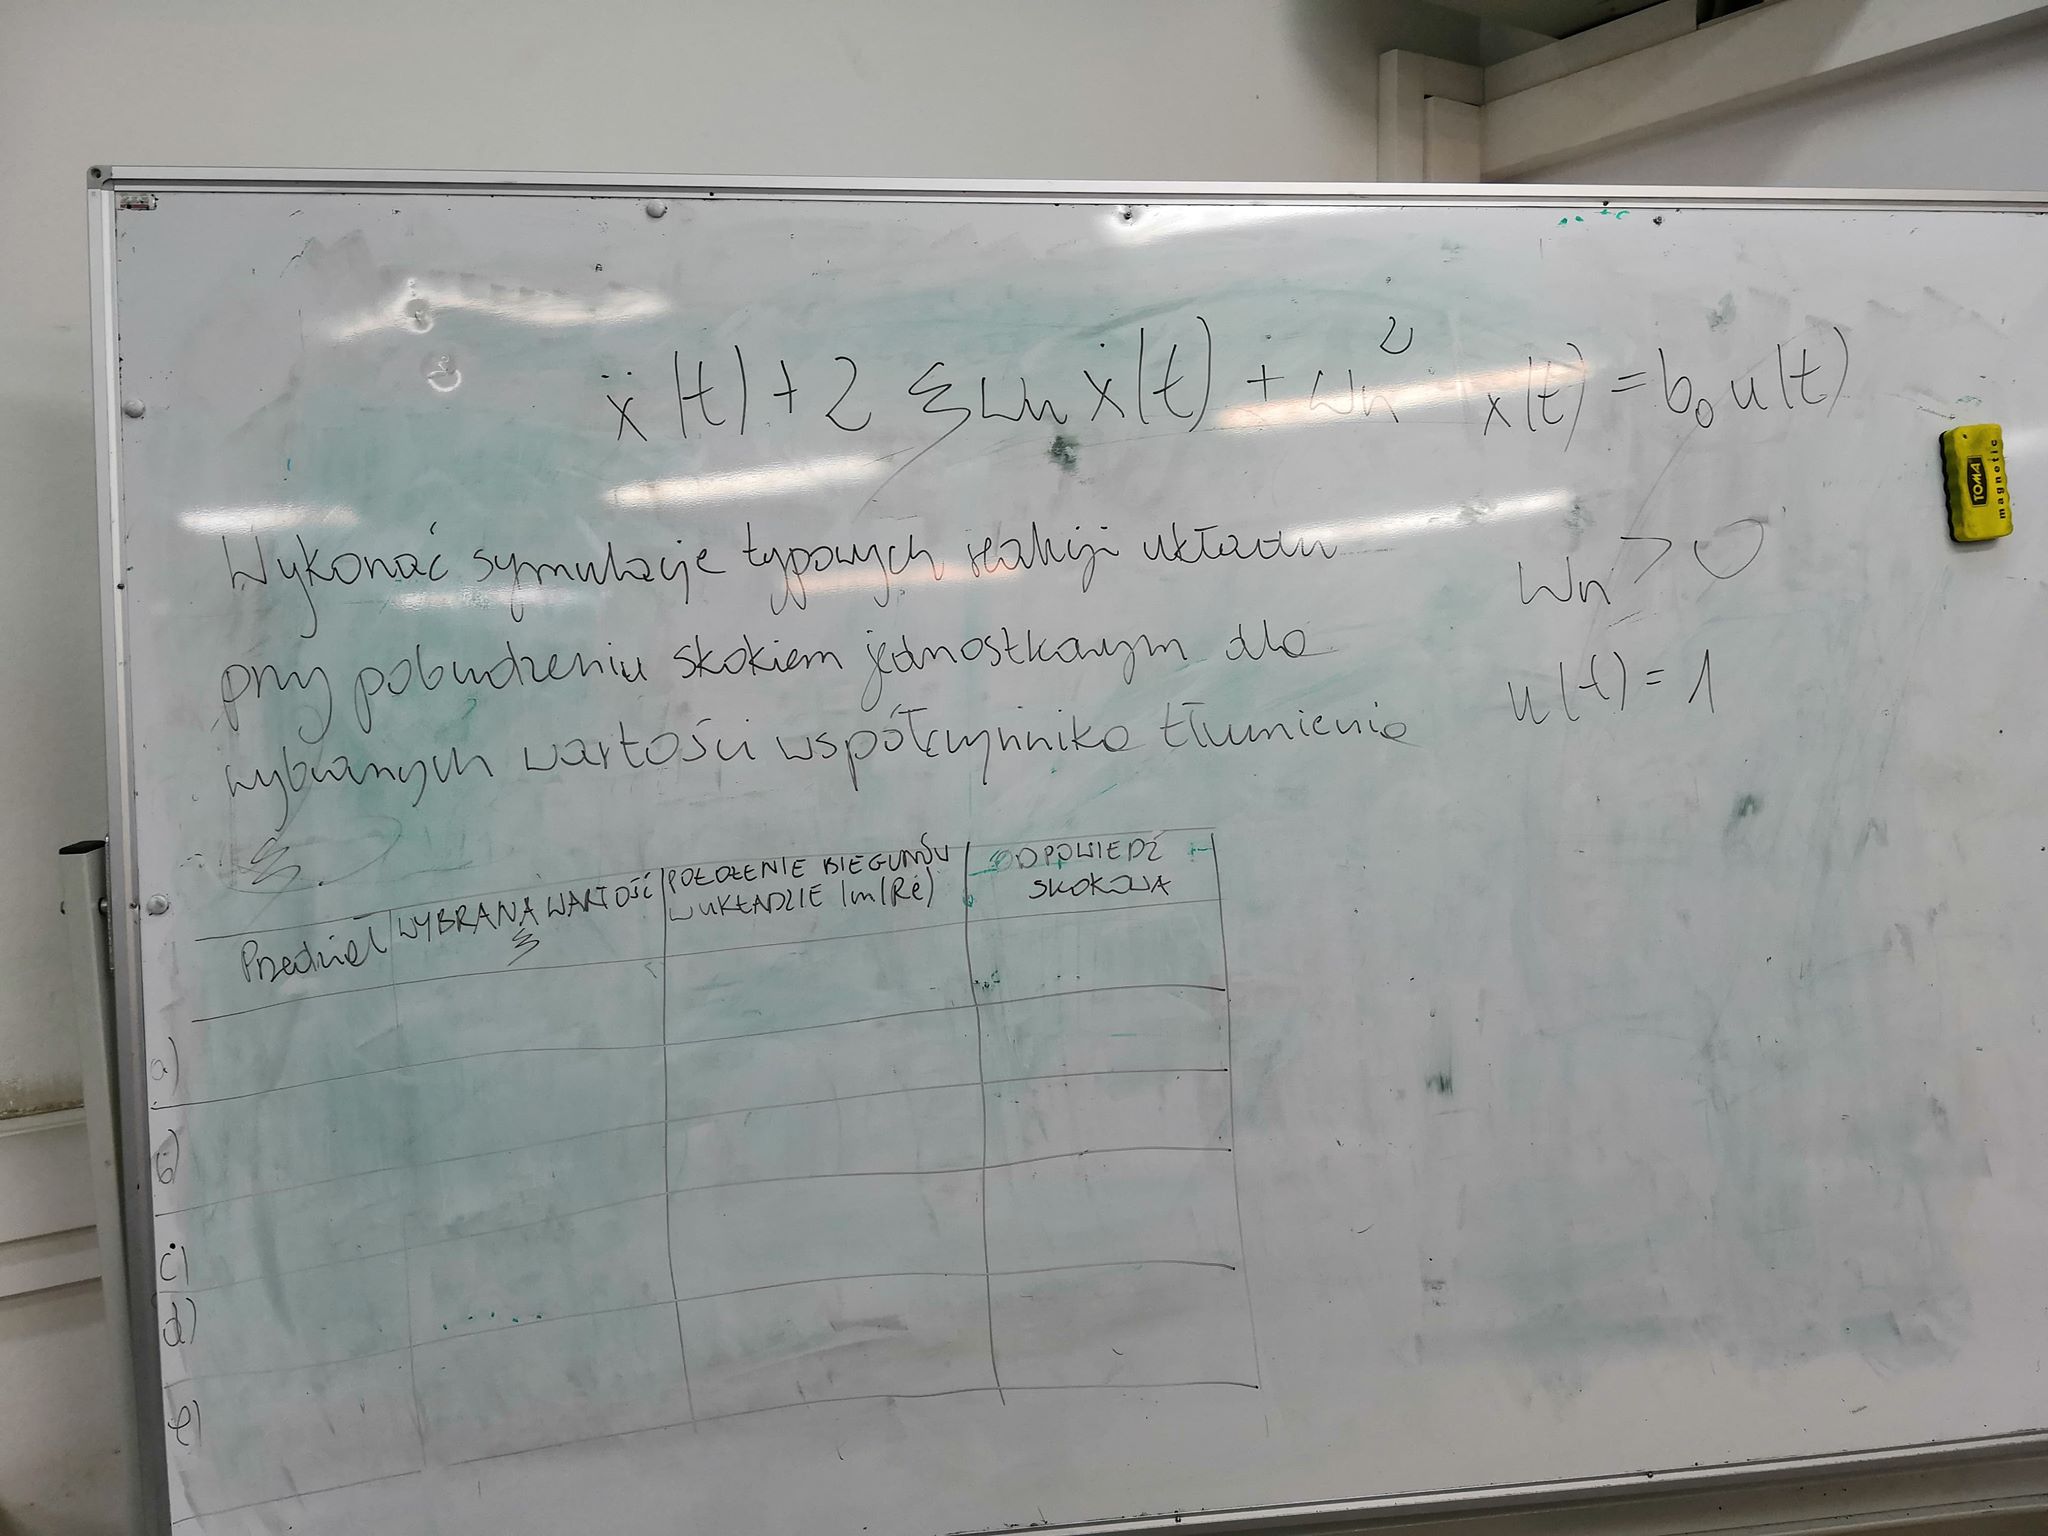 ẍ(t) + 2 ξ ωn ẋ(t) + ωn² x(t) = b₀ u(t)
Wykonać symulacje typowych reakcji układu
przy pobudzeniu skokiem jednostkowym dla
wybranych wartości współczynnika tłumienia
ξ.
ωn > 0
u(t) = 1
TOMA
magnetic
Przedział
WYBRANA WARTOŚĆ
ξ
POŁOŻENIE BIEGUNÓW
W UKŁADZIE Im(Re)
ODPOWIEDŹ
SKOKOWA
a)
b)
c)
d)
e)